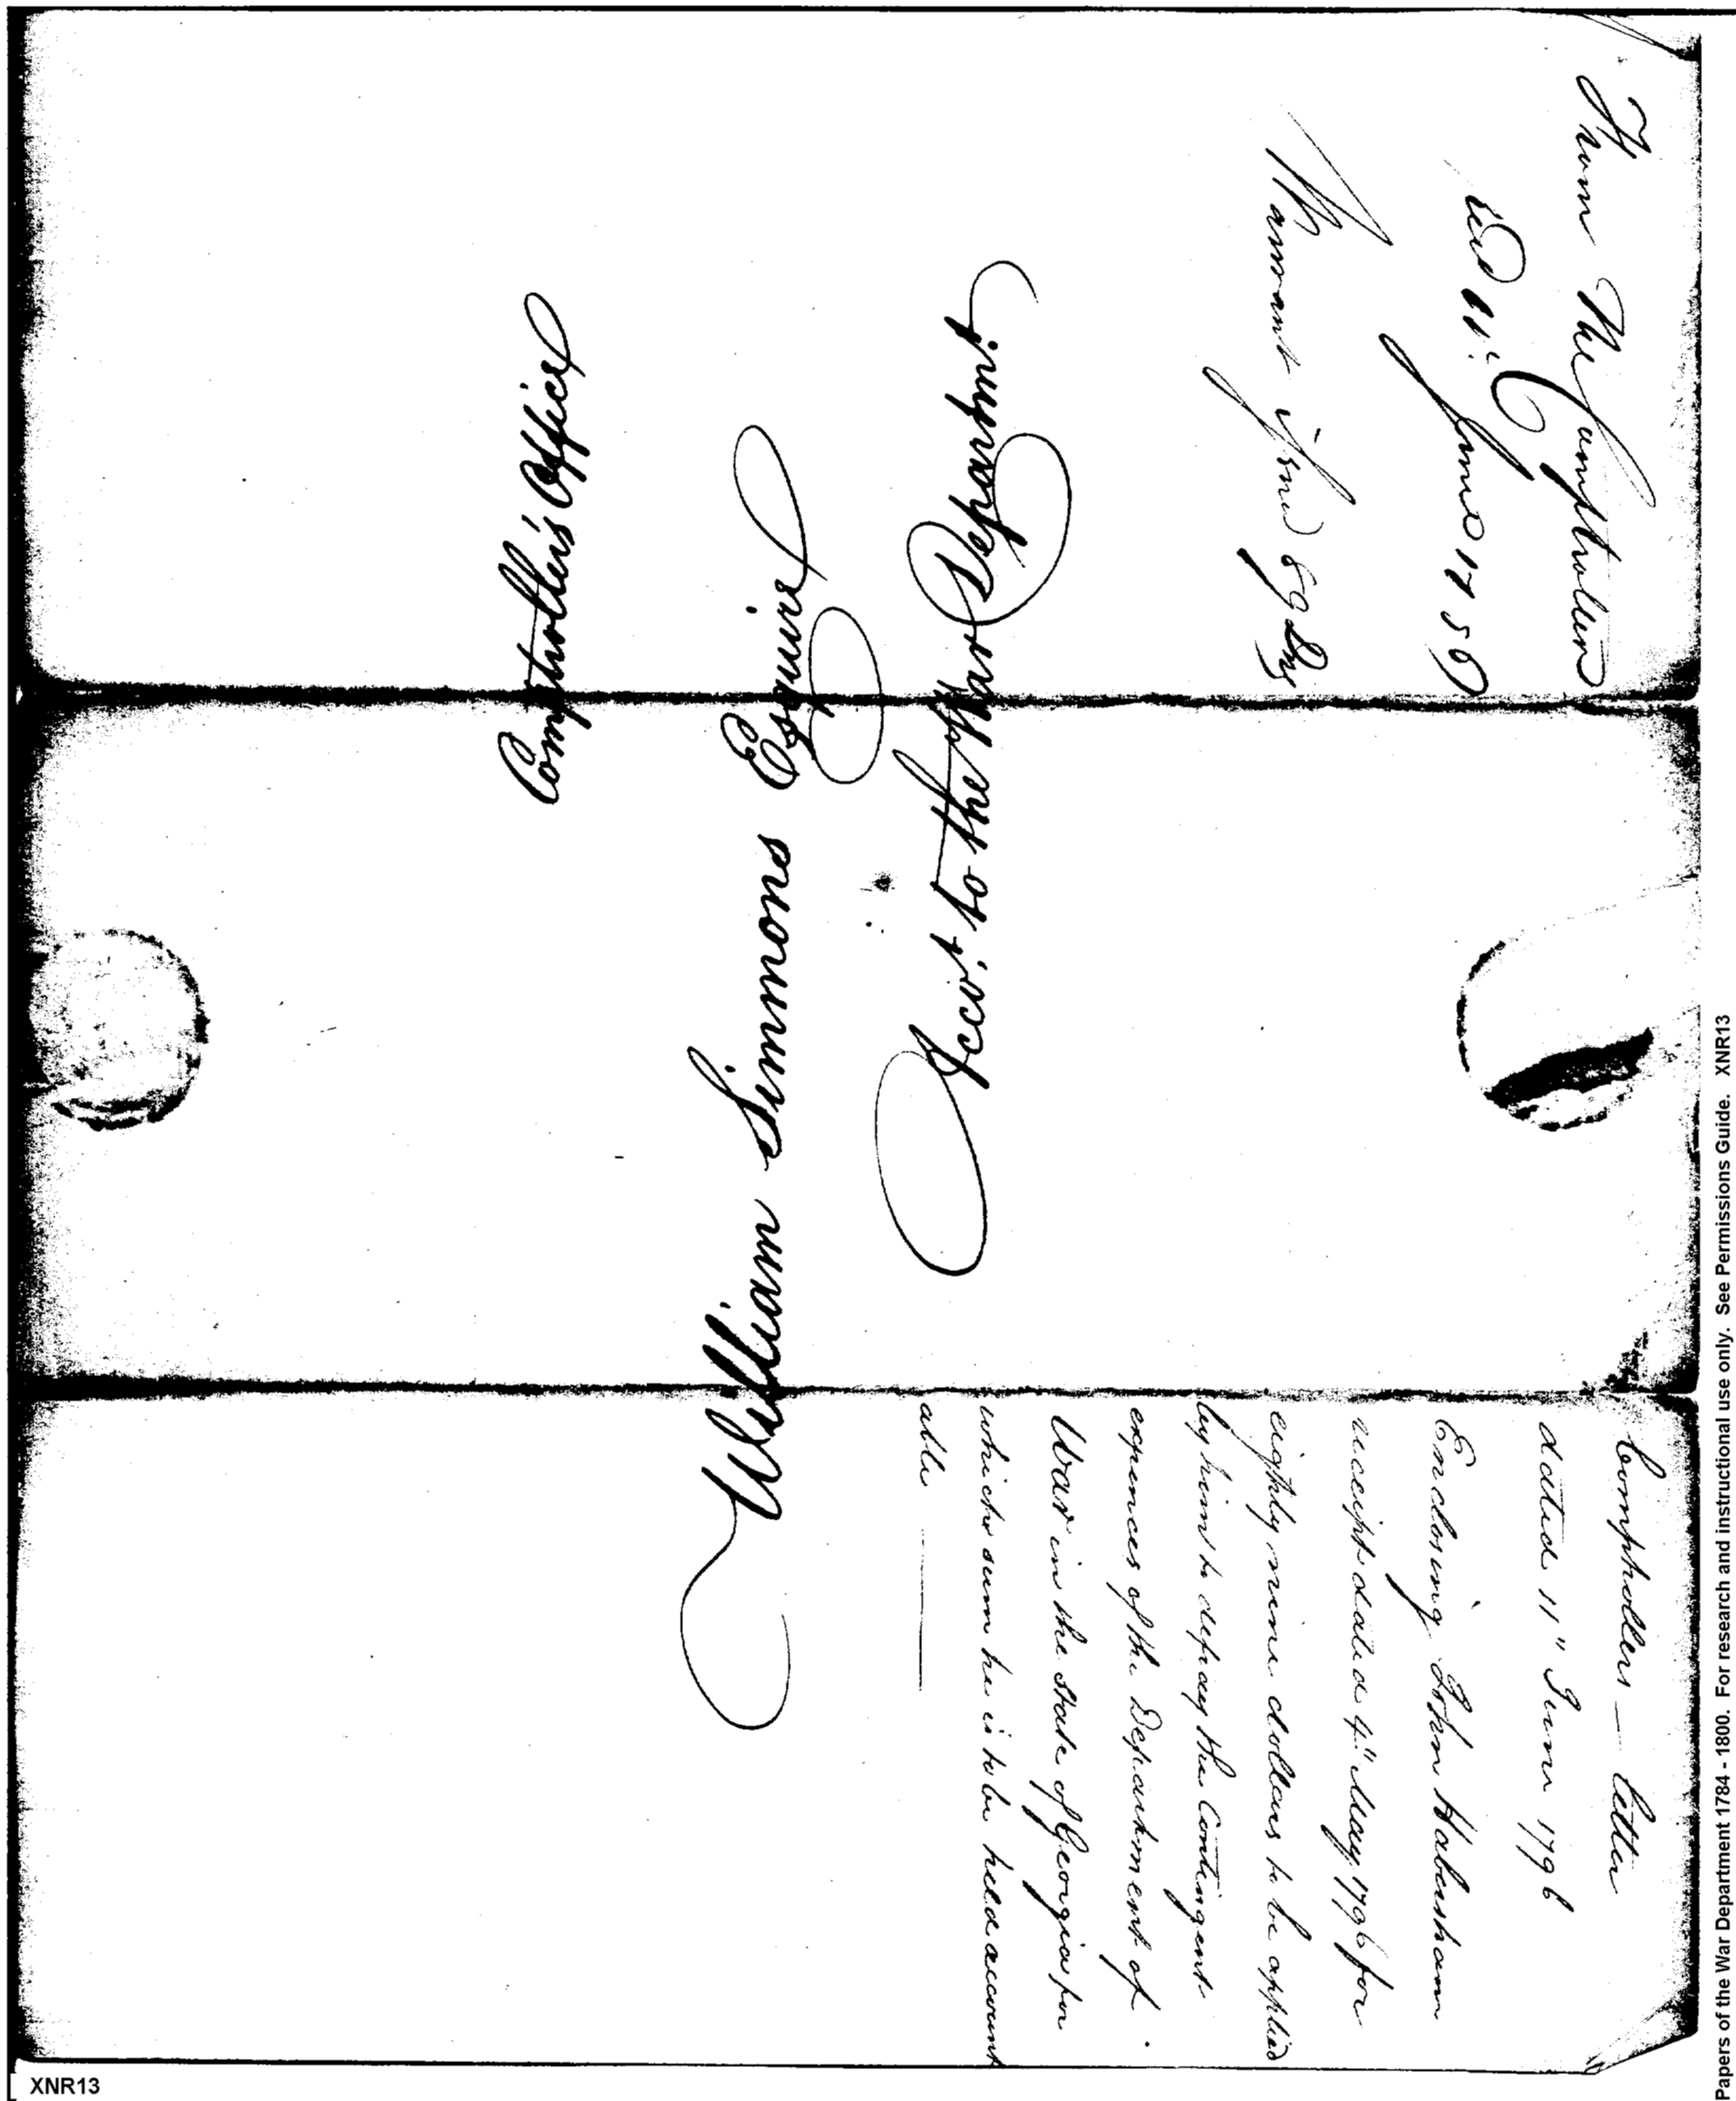 Comptroller's Office
William Simmons Esquire
Acco't to the War Department
From The Comptroller
11th June 1796
Warrant issued 89 Drs
Comptrollers — letter
dated 11" June 1796
Enclosing John Habersham
receipt dated 4" May 1796 for
eighty nine dollars to be applied
by him to defray the Contingent
expences of the Department of
War in the State of Georgia for
which sum he is to be held account
able
Papers of the War Department 1784 - 1800. For research and instructional use only. See Permissions Guide. XNR13
XNR13